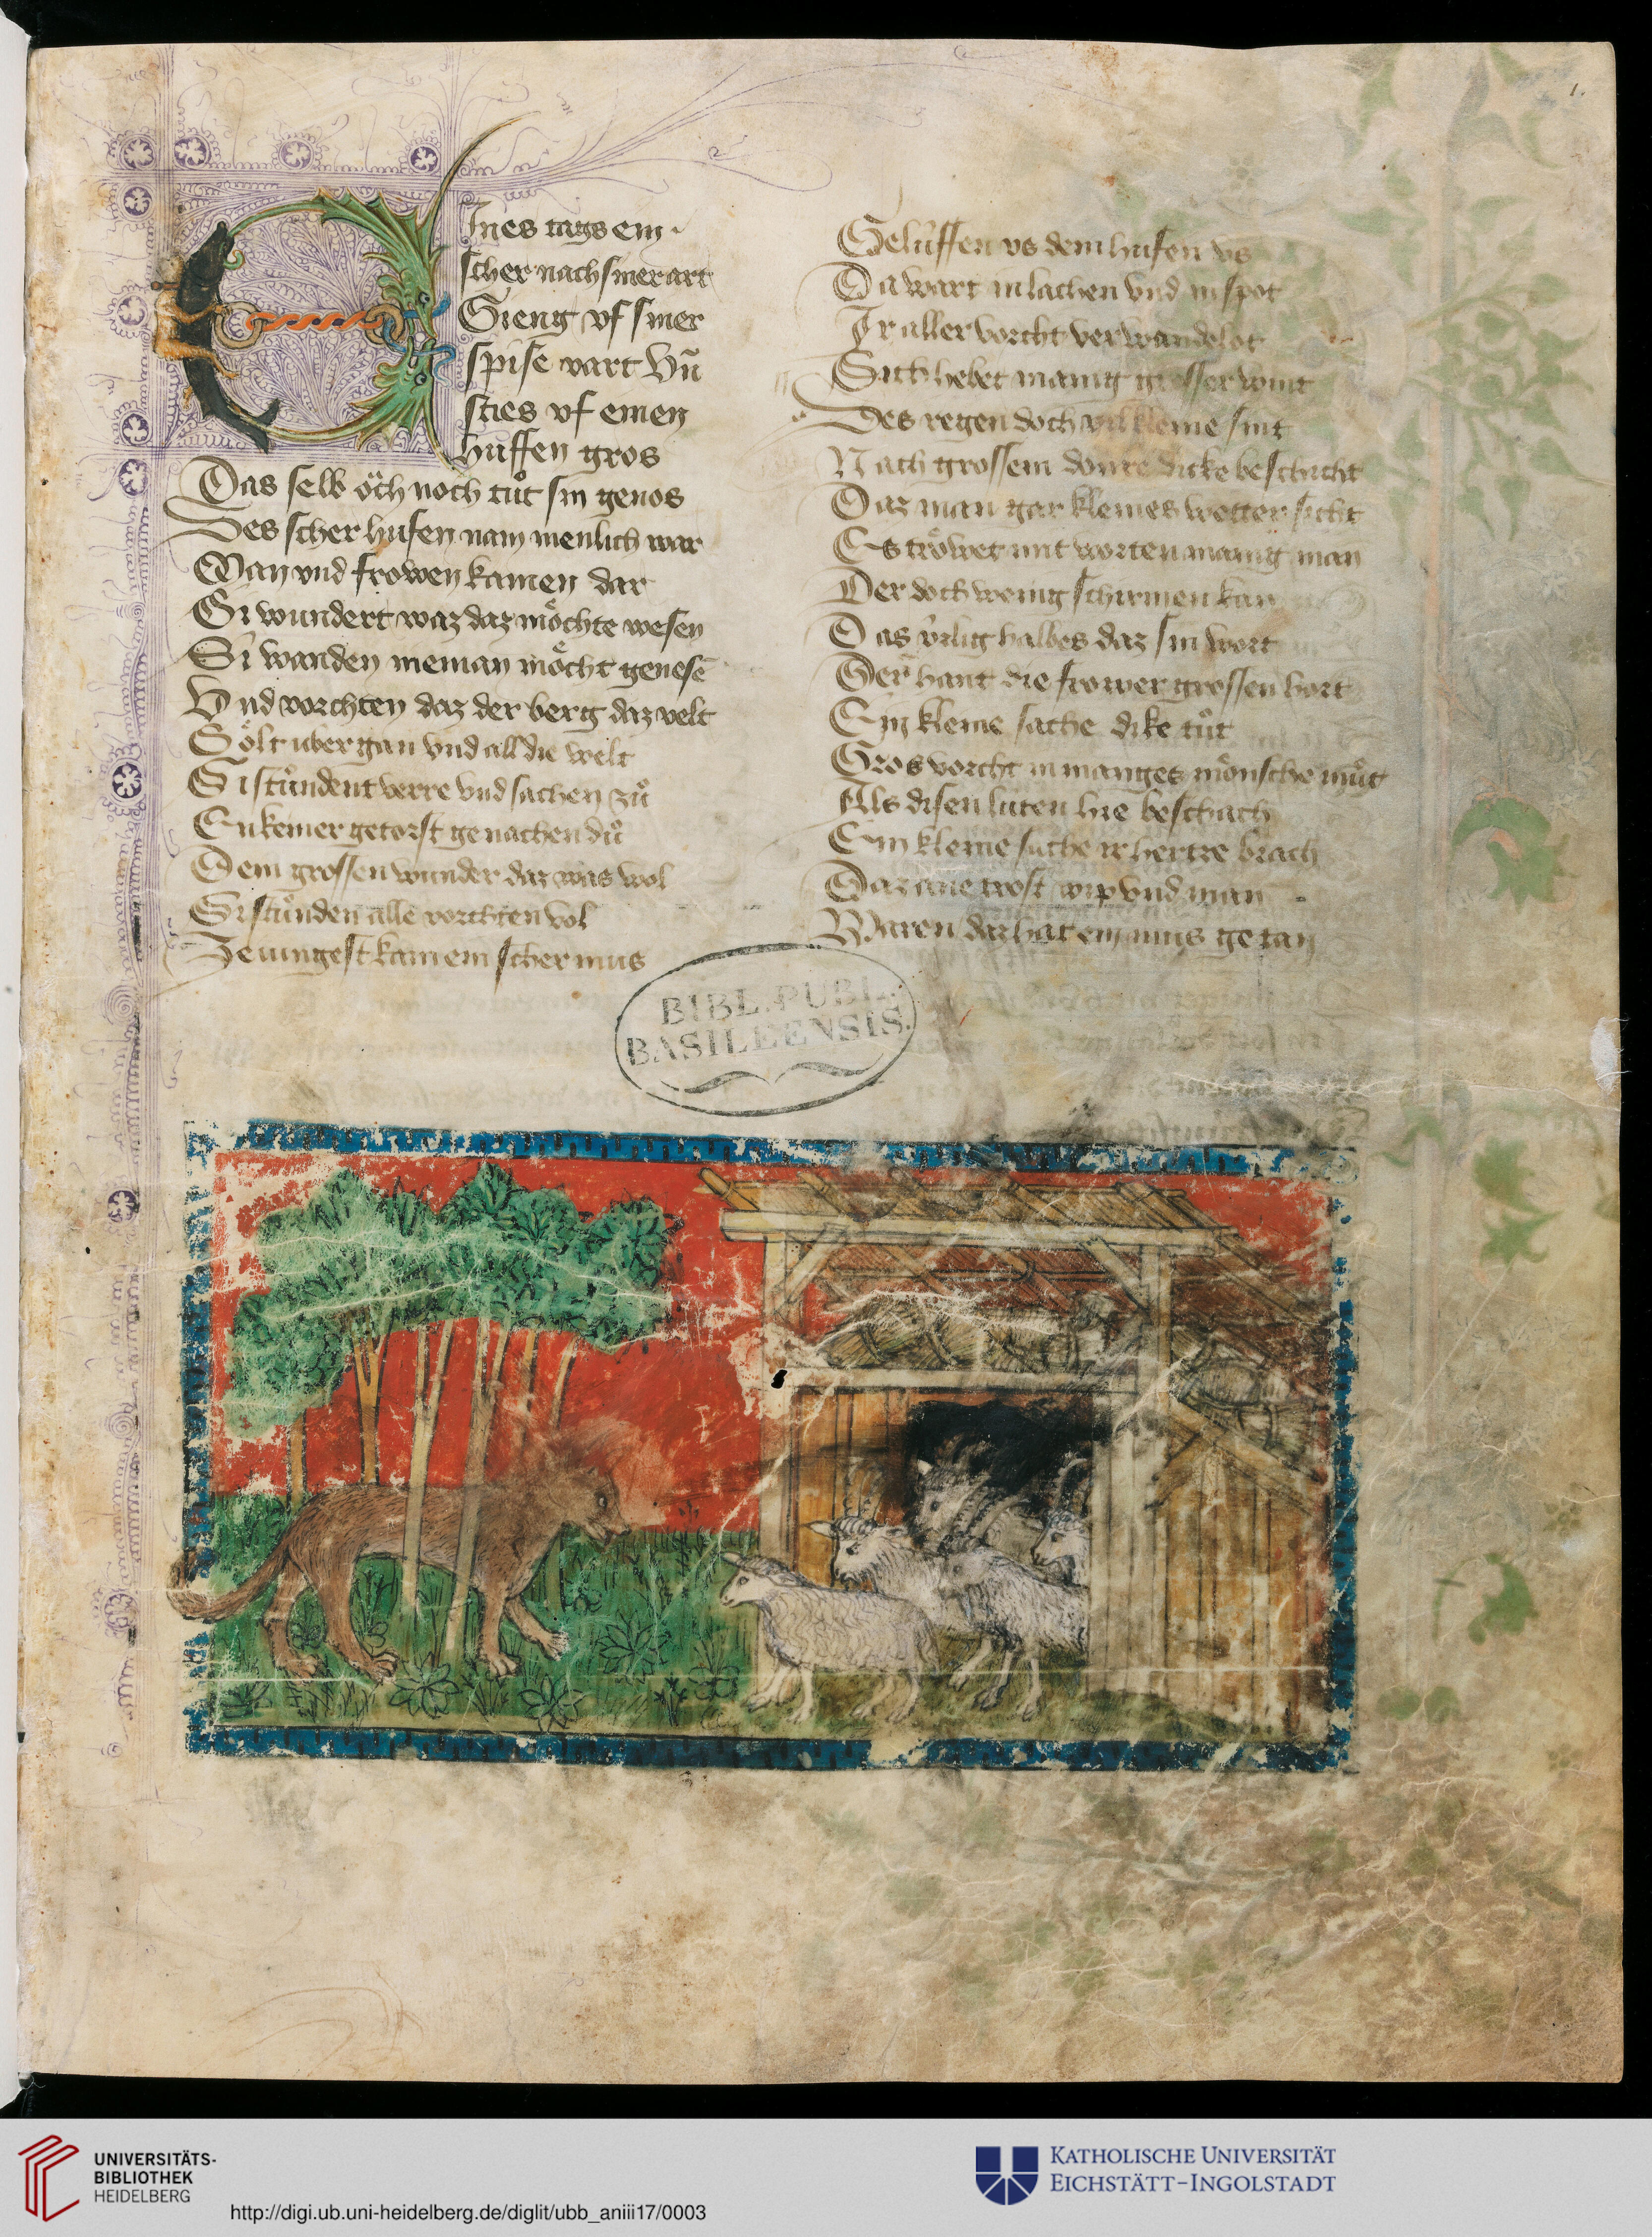 1.
EInes tags ein
scher nach siner art
Gieng vf siner
spise vart Vn̄
sties vf einen
huffen gros
Das selb öch noch tůt sin genos
Des scher hufen nam menlich war
Man vnd frowen kamen dar
Si wundert waz daz möchte wesen
Si wanden nieman möcht genesē
Vnd vorchten daz der berg daz velt
Sölt uber gan vnd all die welt
Si stůndent verre vnd sachen zů
Enkeiner getorst genachen dů
Dem grossen wunder daz was wol
Si stůnden alle vorchten vol
Ze iungest kam ein scher mus
Gelüffen vs dem hufen vs
Da wart in lachen vnd in spot
Ir aller vorcht verwandelot
Sich hebet manig grosser wint
Des regen doch vil kleine sint
Nach grossem donre dicke beschicht
Daz man gar kleines wetter sicht
Es tröwet mit worten manig man
Der doch wenig schirmen kan
Das vrlig halbes daz sin wort
Der hant die frower grossen hort
Ein kleine sache dike tůt
Gros vorcht in manges mönsche můt
Als disen lüten hie beschach
Ein kleine sache ir hertze brach
Daz ane trost wip vnd man
Waren daz hat ein mus getan
BIBL. PUBL.
BASILEENSIS.
UNIVERSITÄTS-
BIBLIOTHEK
HEIDELBERG
http://digi.ub.uni-heidelberg.de/diglit/ubb_aniii17/0003
KATHOLISCHE UNIVERSITÄT
EICHSTÄTT-INGOLSTADT